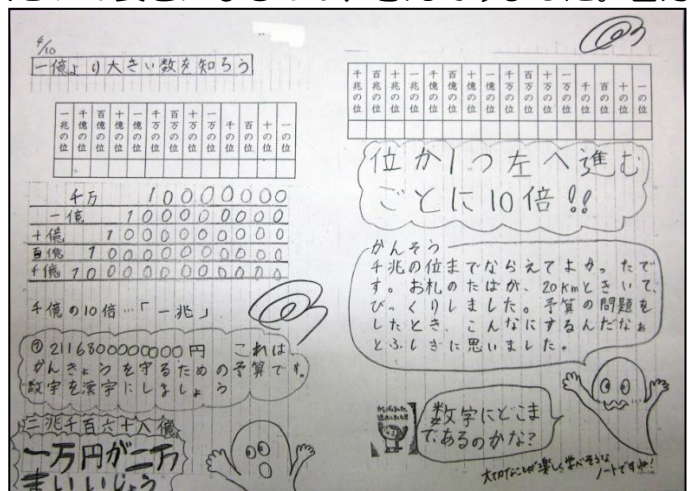 4/10
一億より大きい数を知ろう
一兆の位 千億の位 百億の位 十億の位 一億の位 千万の位 百万の位 十万の位 一万の位 千の位 百の位 十の位 一の位
千万 10000000
一億 100000000
十億 1000000000
百億 10000000000
千億 100000000000
千億の10倍…「一兆」
⑦ 2116800000000円 これは
かんきょうを守るための予算です。
数字を漢字にしましょう
二兆千百六十八億
一万円が二万
まいいじょう
千兆の位 百兆の位 十兆の位 一兆の位 千億の位 百億の位 十億の位 一億の位 千万の位 百万の位 十万の位 一万の位 千の位 百の位 十の位 一の位
位が1つ左へ進む
ごとに10倍!!
かんそう
千兆の位までならえてよかったで
す。お札のたばが、20kmときいて、
びっくりしました。予算の問題を
したとき、こんなにするんだなぁ
とふしぎに思いました。
数字にどこま
であるのかな?
大切なことが楽しく学べそうな
ノートですね!